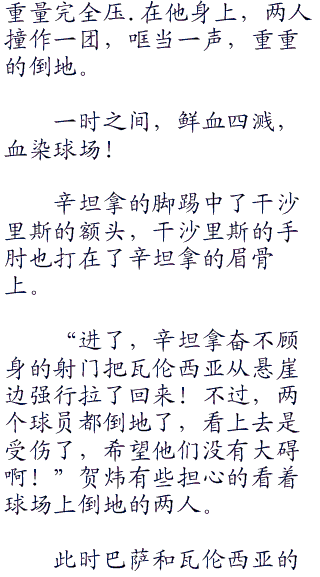 重量完全压.在他身上，两人
撞作一团，哐当一声，重重
的倒地。
一时之间，鲜血四溅，
血染球场！
辛坦拿的脚踢中了干沙
里斯的额头，干沙里斯的手
肘也打在了辛坦拿的眉骨
上。
“进了，辛坦拿奋不顾
身的射门把瓦伦西亚从悬崖
边强行拉了回来！不过，两
个球员都倒地了，看上去是
受伤了，希望他们没有大碍
啊！”贺炜有些担心的看着
球场上倒地的两人。
此时巴萨和瓦伦西亚的